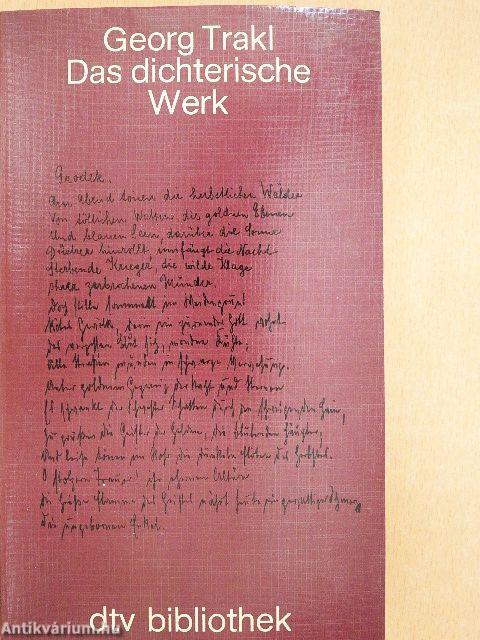 Georg Trakl
Das dichterische
Werk
Grodek.
Am Abend tönen die herbstlichen Wälder
Von tötlichen Waffen, die goldnen Ebenen
Und blauen Seen, darüber die Sonne
Düstrer hinrollt; umfängt die Nacht
Sterbende Krieger, die wilde Klage
Ihrer zerbrochenen Münder.
Doch stille sammelt im Weidengrund
Rotes Gewölk, darin ein zürnender Gott wohnt
Das vergoßne Blut sich, mondne Kühle;
Alle Straßen münden in schwarze Verwesung.
Unter goldenem Gezweig der Nacht und Sternen
Es schwankt der Schwester Schatten durch den schweigenden Hain,
Zu grüßen die Geister der Helden, die blutenden Häupter;
Und leise tönen im Rohr die dunkeln Flöten des Herbstes.
O stolzere Trauer! ihr ehernen Altäre
Die heiße Flamme des Geistes nährt heute ein gewaltiger Schmerz
Die ungebornen Enkel.
dtv bibliothek
Antikvárium.hu